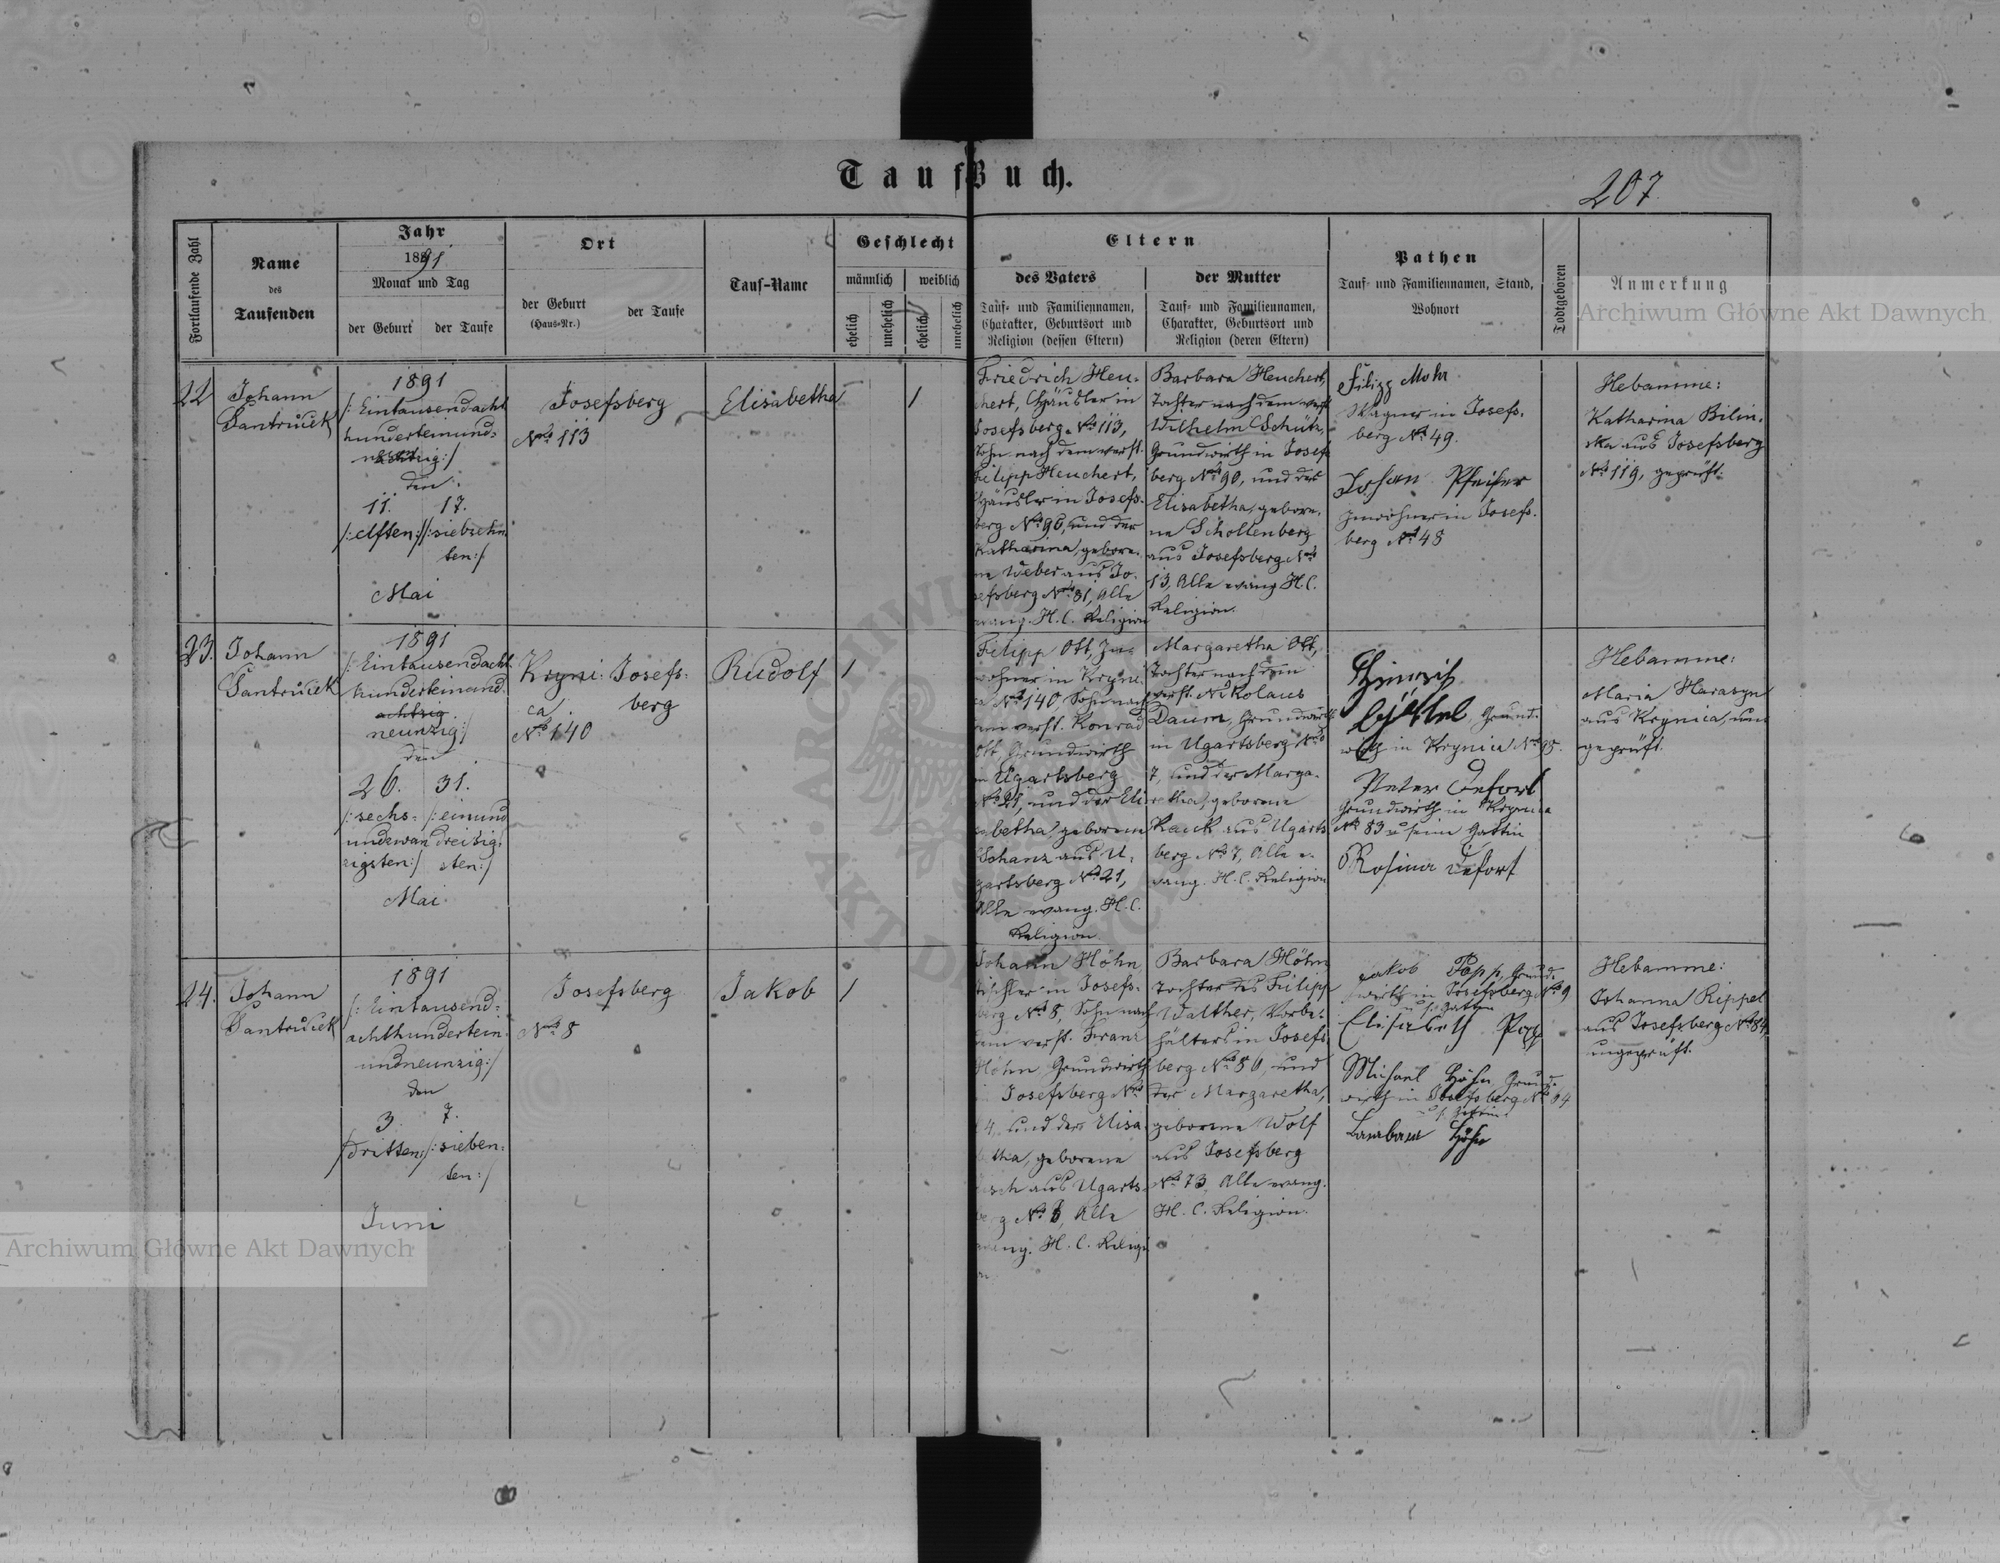 Taufbuch.
207.
Fortlaufende Zahl
Name
des
Taufenden
Jahr
1891
Monat und Tag
der Geburt
der Taufe
Ort
der Geburt
(Haus-Nr.)
der Taufe
Tauf-Name
Geschlecht
männlich
weiblich
ehelich
unehelich
ehelich
unehelich
Eltern
des Vaters
Tauf- und Familiennamen,
Charakter, Geburtsort und
Religion (dessen Eltern)
der Mutter
Tauf- und Familiennamen,
Charakter, Geburtsort und
Religion (deren Eltern)
Pathen
Tauf- und Familiennamen, Stand,
Wohnort
Todtgeboren
Anmerkung
Archiwum Główne Akt Dawnych
22
Johann
Santruček
1891
/: Eintausendacht
hunderteinund-
den
11. 17.
/:elften:/ /:siebzehn
ten:/
Mai
Josefsberg
No 113
Elisabetha
1
Friedrich Heu-
chert, Häusler in
Josefsberg No 113,
Sohn nach dem verst.
Filipp Heuchert,
Häusler in Josefs-
berg No 96, und der
Katharina, gebore-
ne Weber aus Jo-
sefsberg No 31, Alle
evang. H. C. Religion
Barbara Heuchert,
Tochter nach dem verst.
Wilhelm Schütz,
Grundwirth in Josefs
berg No 90, und der
Elisabetha, gebore-
ne Schollenberg
aus Josefsberg No
13, Alle evang. H. C.
Religion.
Filipp Mohr
Wagner in Josefs-
berg No 49.
Johan Pfeifer
Inwohner in Josefs-
berg No 48
Hebamme:
Katharina Bilin-
ska aus Josefsberg
No 119, geprüft.
23.
Johann
Santruček
1891
/: Eintausendacht
hunderteinund
achtzig
neunzig:/
den
26. 31.
/:sechs- /:einund
undzwan dreißig-
zigsten:/ sten:/
Mai
Kryni- Josefs-
ca berg
No 140
Rudolf
1
Filipp Ott, In-
wohner in Kryni-
ca No 140, Sohn nach
dem verst. Konrad
Ott, Grundwirth
in Ugartsberg
No 21, und der Eli
sabetha, geborene
Schanz aus U-
gartsberg No 21,
Alle evang. H. C.
Religion
Margaretha Ott,
Tochter nach dem
verst. Nikolaus
Daum, Grundwirth
in Ugartsberg No
7, und der Marga-
retha, geborene
aus Ugarts
berg No 7, Alle e-
vang. H. C. Religion
Grund-
wirth in Krynica No
Peter Defort
Grundwirth in Krynica
No 83 u seine Gattin
Rosina Defort
Hebamme:
Maria Harasyn
aus Krynica, un
geprüft.
24.
Johann
Santruček
1891
/: Eintausend-
achthundertein-
undneunzig:/
den
3. 7.
/:dritten:/ /:sieben-
ten:/
Juni
Josefsberg
No 8
Jakob
1
Johann Höhn,
Tischler in Josefs-
berg No 8, Sohn nach
dem verst. Franz
Höhn, Grundwirth
Josefsberg No
4, und der Elisa-
tha, geborene
aus Ugarts-
berg No 8, Alle
evang. H. C. Religi
on.
Barbara Höhn
Tochter des Filipp
Walther, Vorbe-
hälters in Josefs
berg No 56, und
der Margaretha,
geborene Wolf
aus Josefsberg
No 73, Alle evang.
H. C. Religion.
Jakob Popp, Grund-
wirth in Josefsberg No 9
u s. Gattin
Elisabeth Popp
Michael Höhn Grund-
wirth in Josefsberg No 64
u s. Gattin
Barbara Höhn
Hebamme:
Johanna Rippel
aus Josefsberg No 84,
ungeprüft.
Archiwum Główne Akt Dawnych